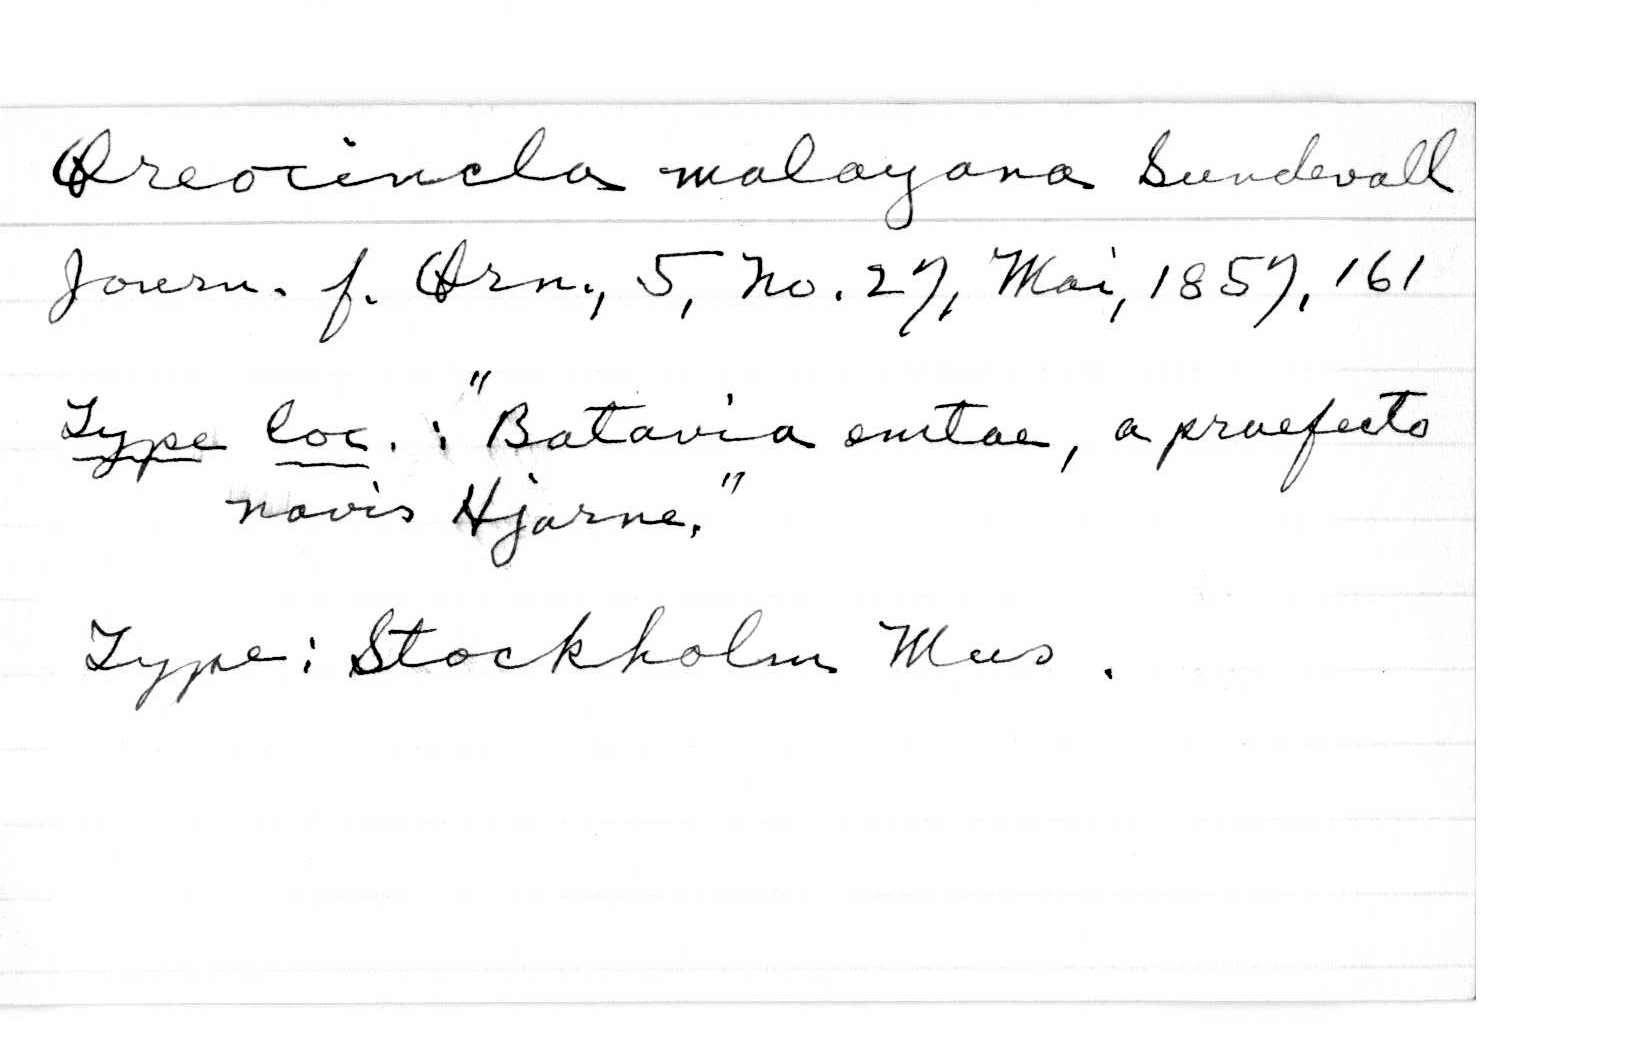 Oreocincla malayana Sundevall
Journ. f. Orn., 5, No. 27, Mai, 1857, 161
Type loc.: "Batavia emtae, a praefecto
navis Hjarne."
Type: Stockholm Mus.